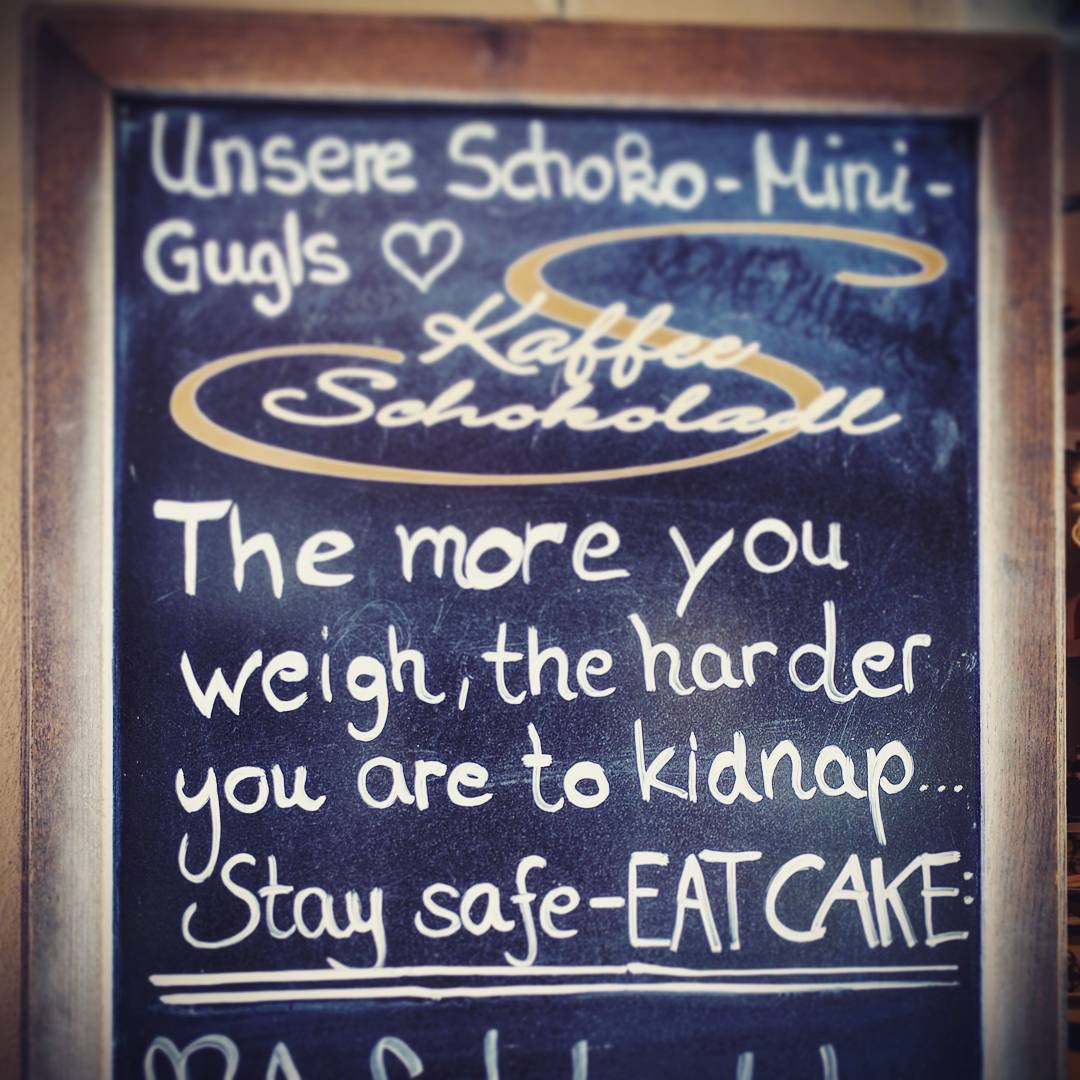 Unsere Schoko-Mini-
Gugls ♡
Kaffee
Schokoladl
The more you
weigh, the harder
you are to kidnap...
Stay safe-EAT CAKE: